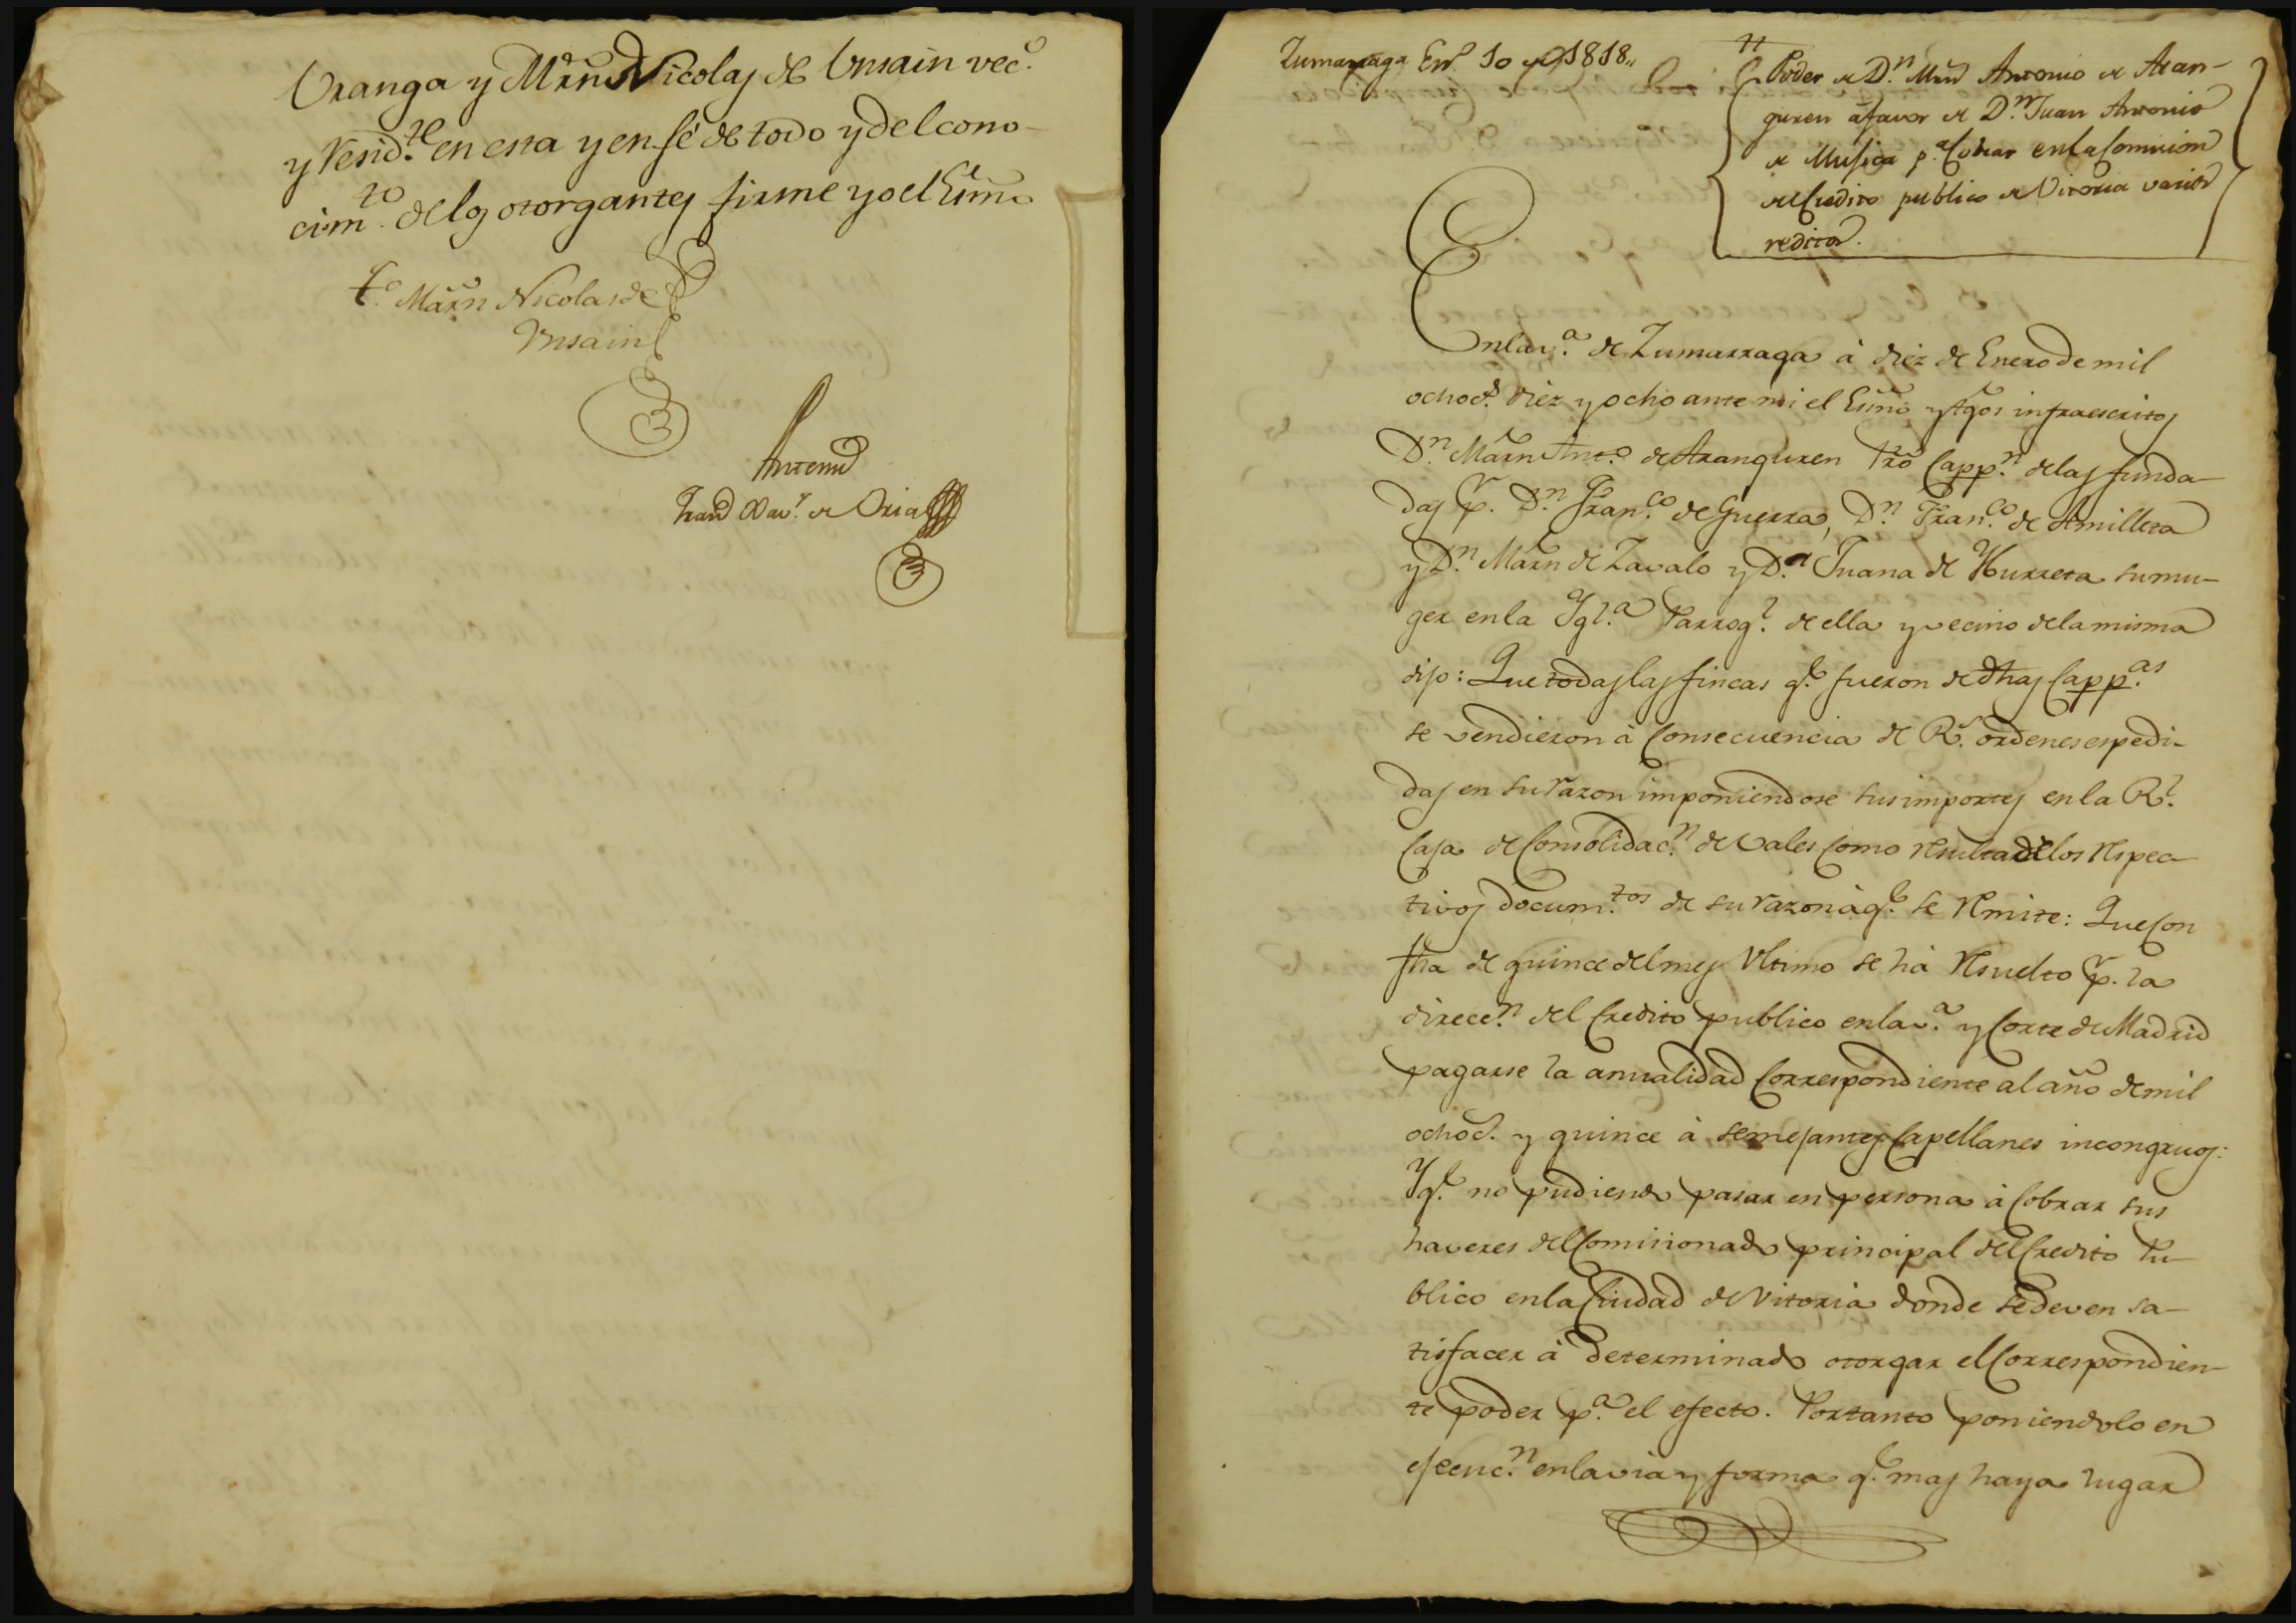 Uranga y Mrn Nicolas de Unsain vec.º
y resid.te en esta y en fé de todo y del cono-
cim.to de los otorgantes firme yo el Esno
t.º Marn Nicolas de
Unsain
Antemi
Fran.co Xav.r de Oria
Zumarraga En.º 10 de 1818„
Poder de D.n Mrn Antonio de Aran-
guren à favor de D.n Juan Antonio
de Mugica p.a Cobrar en la Comision
del Credito publico de Vitoria varios
reditos.
En la v.a de Zumarraga à diez de Enero de mil
ochoc.s diez y ocho ante mi el Esno y tgos infraescritos
D.n Marn Ant.º de Aranguren Pro Capp.n de las funda-
das p.r D.n Fran.co de Guerra, D.n Fran.co de Amilleta
y D.n Marn de Zavalo y D.a Juana de Yturreta su mu-
ger en la Ygl.a Parroq.l de ella y vecino de la misma
dijo: Que todas las fincas q.e fueron de dhas Capp.as
se vendieron à Consecuencia de R.s ordenes espedi-
das en su razon imponiendose sus importes en la R.l
Caja de Consolidac.n de Vales Como resulta de los respec-
tivos docum.tos de su razon à q.e se remite: Que Con
fha de quince del mes Ultimo se hà resuelto p.r la
direcc.n del Credito publico en la v.a y Corte de Madrid
pagarse la anualidad Correspondiente al año de mil
ochoc.s y quince à semejantes Capellanes incongruos:
Y q.e no pudiendo pasar en persona à Cobrar sus
haveres del Comisionado principal del Credito Pu-
blico en la Ciudad de Vitoria donde se deven sa-
tisfacer à determinado otorgar el Correspondien-
te poder p.a el efecto. Portanto poniendolo en
ejecuc.n en la via y forma q.e mas haya lugar